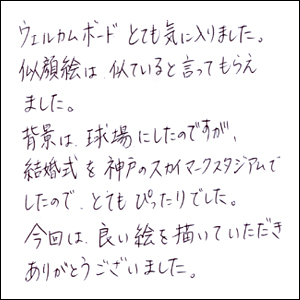 ウェルカムボード とても気に入りました。
似顔絵は、似ていると言ってもらえ
ました。
背景は、球場にしたのですが、
結婚式を神戸のスカイマークスタジアムで
したので、とてもぴったりでした。
今回は、良い絵を描いていただき
ありがとうございました。